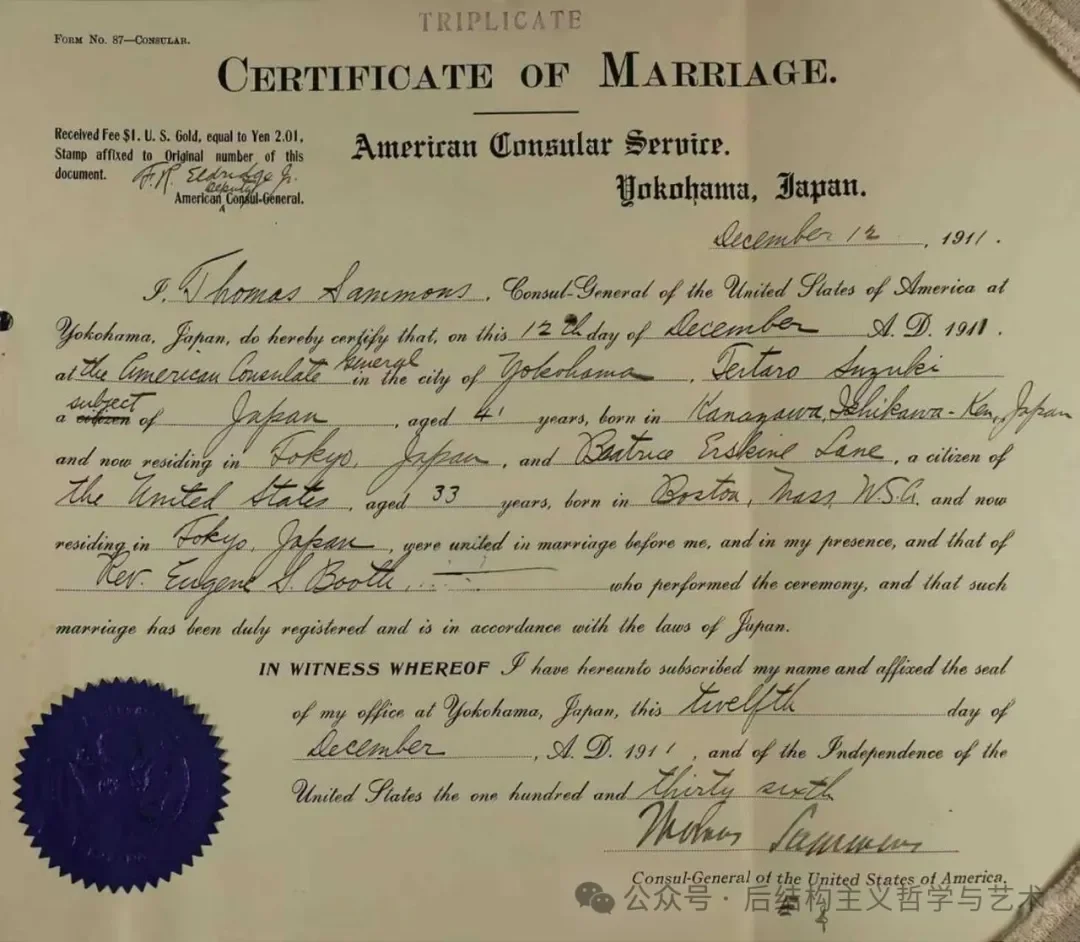 TRIPLICATE
FORM NO. 87—CONSULAR.
CERTIFICATE OF MARRIAGE.
Received Fee $1. U. S. Gold, equal to Yen 2.01,
Stamp affixed to Original number of this
document. F. R. Eldridge Jr.
Deputy
American Consul-General.
American Consular Service.
Yokohama, Japan.
December 12, 1911.
I, Thomas Sammons, Consul-General of the United States of America at
Yokohama, Japan, do hereby certify that, on this 12th day of December A. D. 1911.
at the American Consulate General in the city of Yokohama, Teitaro Suzuki
subject
a citizen of Japan, aged 41 years, born in Kanazawa, Ishikawa-Ken, Japan
and now residing in Tokyo, Japan, and Beatrice Erskine Lane, a citizen of
the United States, aged 33 years, born in Boston, Mass, U.S.A. and now
residing in Tokyo, Japan, were united in marriage before me, and in my presence, and that of
Rev. Eugene S. Booth, who performed the ceremony, and that such
marriage has been duly registered and is in accordance with the laws of Japan.
IN WITNESS WHEREOF I have hereunto subscribed my name and affixed the seal
of my office at Yokohama, Japan, this twelfth day of
December, A. D. 1911, and of the Independence of the
United States the one hundred and thirty sixth
Thomas Sammons
Consul-General of the United States of America.
公众号 · 后结构主义哲学与艺术